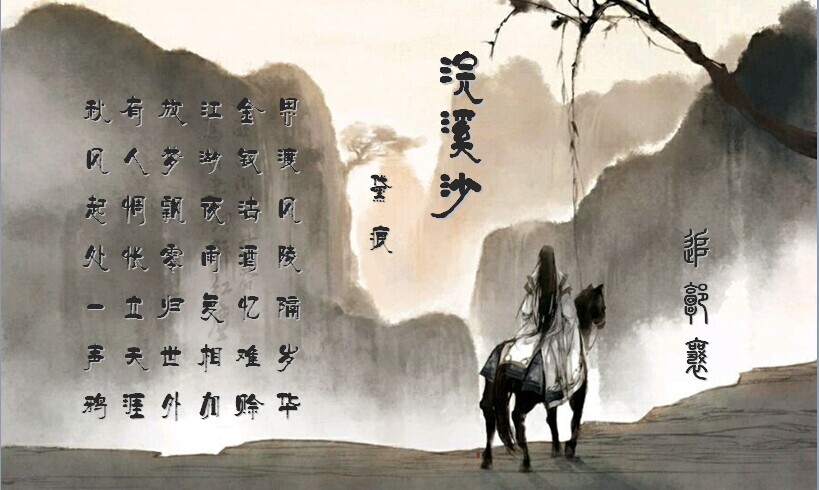 追郭襄
浣溪沙
黛痕
渡风陵隔岁华
金钗沽酒忆难赊
江湖夜雨相加
放梦飘零归世外
有人惆怅立天涯
秋风起处一声鸦